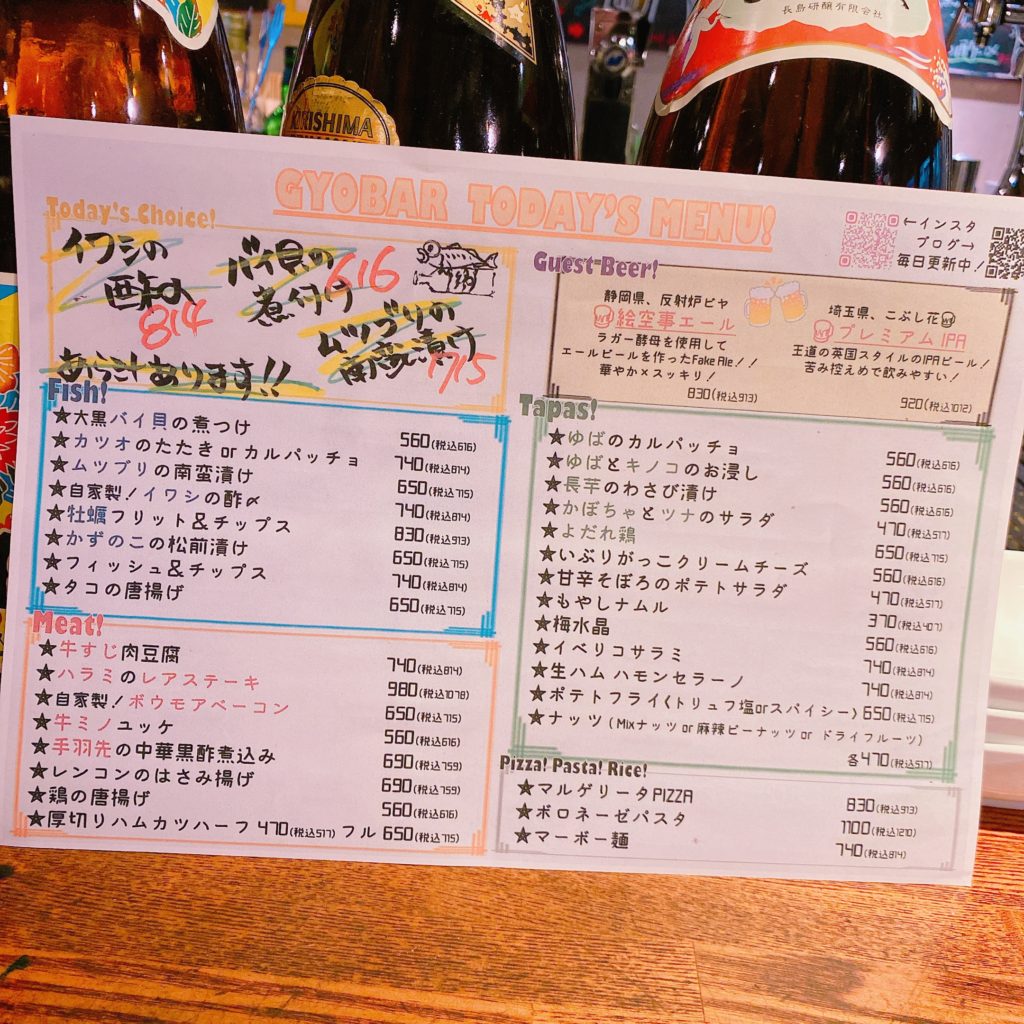 長島研醸有限会社
KIRISHIMA
GYOBAR TODAY'S MENU!
←インスタ
ブログ→
毎日更新中!
Today's Choice!
イワシの
酢〆
814
バイ貝の
煮付け
616
ムツブリの
南蛮漬け
715
あら汁あります!!
Guest Beer!
静岡県、反射炉ビヤ
絵空事エール
ラガー酵母を使用して
エールビールを作ったFake Ale!!
華やか×スッキリ!
830(税込913)
埼玉県、こぶし花
プレミアムIPA
王道の英国スタイルのIPAビール!
苦み控えめで飲みやすい!
920(税込1012)
Fish!
★大黒バイ貝の煮つけ 560(税込616)
★カツオのたたき or カルパッチョ 740(税込814)
★ムツブリの南蛮漬け 650(税込715)
★自家製!イワシの酢〆 740(税込814)
★牡蠣フリット&チップス 830(税込913)
★かずのこの松前漬け 650(税込715)
★フィッシュ&チップス 740(税込814)
★タコの唐揚げ 650(税込715)
Meat!
★牛すじ肉豆腐 740(税込814)
★ハラミのレアステーキ 980(税込1078)
★自家製!ボウモアベーコン 650(税込715)
★牛ミノユッケ 560(税込616)
★手羽先の中華黒酢煮込み 690(税込759)
★レンコンのはさみ揚げ 690(税込759)
★鶏の唐揚げ 560(税込616)
★厚切りハムカツハーフ 470(税込517) フル 650(税込715)
Tapas!
★ゆばのカルパッチョ 560(税込616)
★ゆばとキノコのお浸し 560(税込616)
★長芋のわさび漬け 560(税込616)
★かぼちゃとツナのサラダ 470(税込517)
★よだれ鶏 650(税込715)
★いぶりがっこクリームチーズ 560(税込616)
★甘辛そぼろのポテトサラダ 470(税込517)
★もやしナムル 370(税込407)
★梅水晶 560(税込616)
★イベリコサラミ 740(税込814)
★生ハム ハモンセラーノ 740(税込814)
★ポテトフライ(トリュフ塩orスパイシー) 650(税込715)
★ナッツ(Mixナッツ or 麻辣ピーナッツ or ドライフルーツ)
各470(税込517)
Pizza! Pasta! Rice!
★マルゲリータPIZZA 830(税込913)
★ボロネーゼパスタ 1100(税込1210)
★マーボー麺 740(税込814)